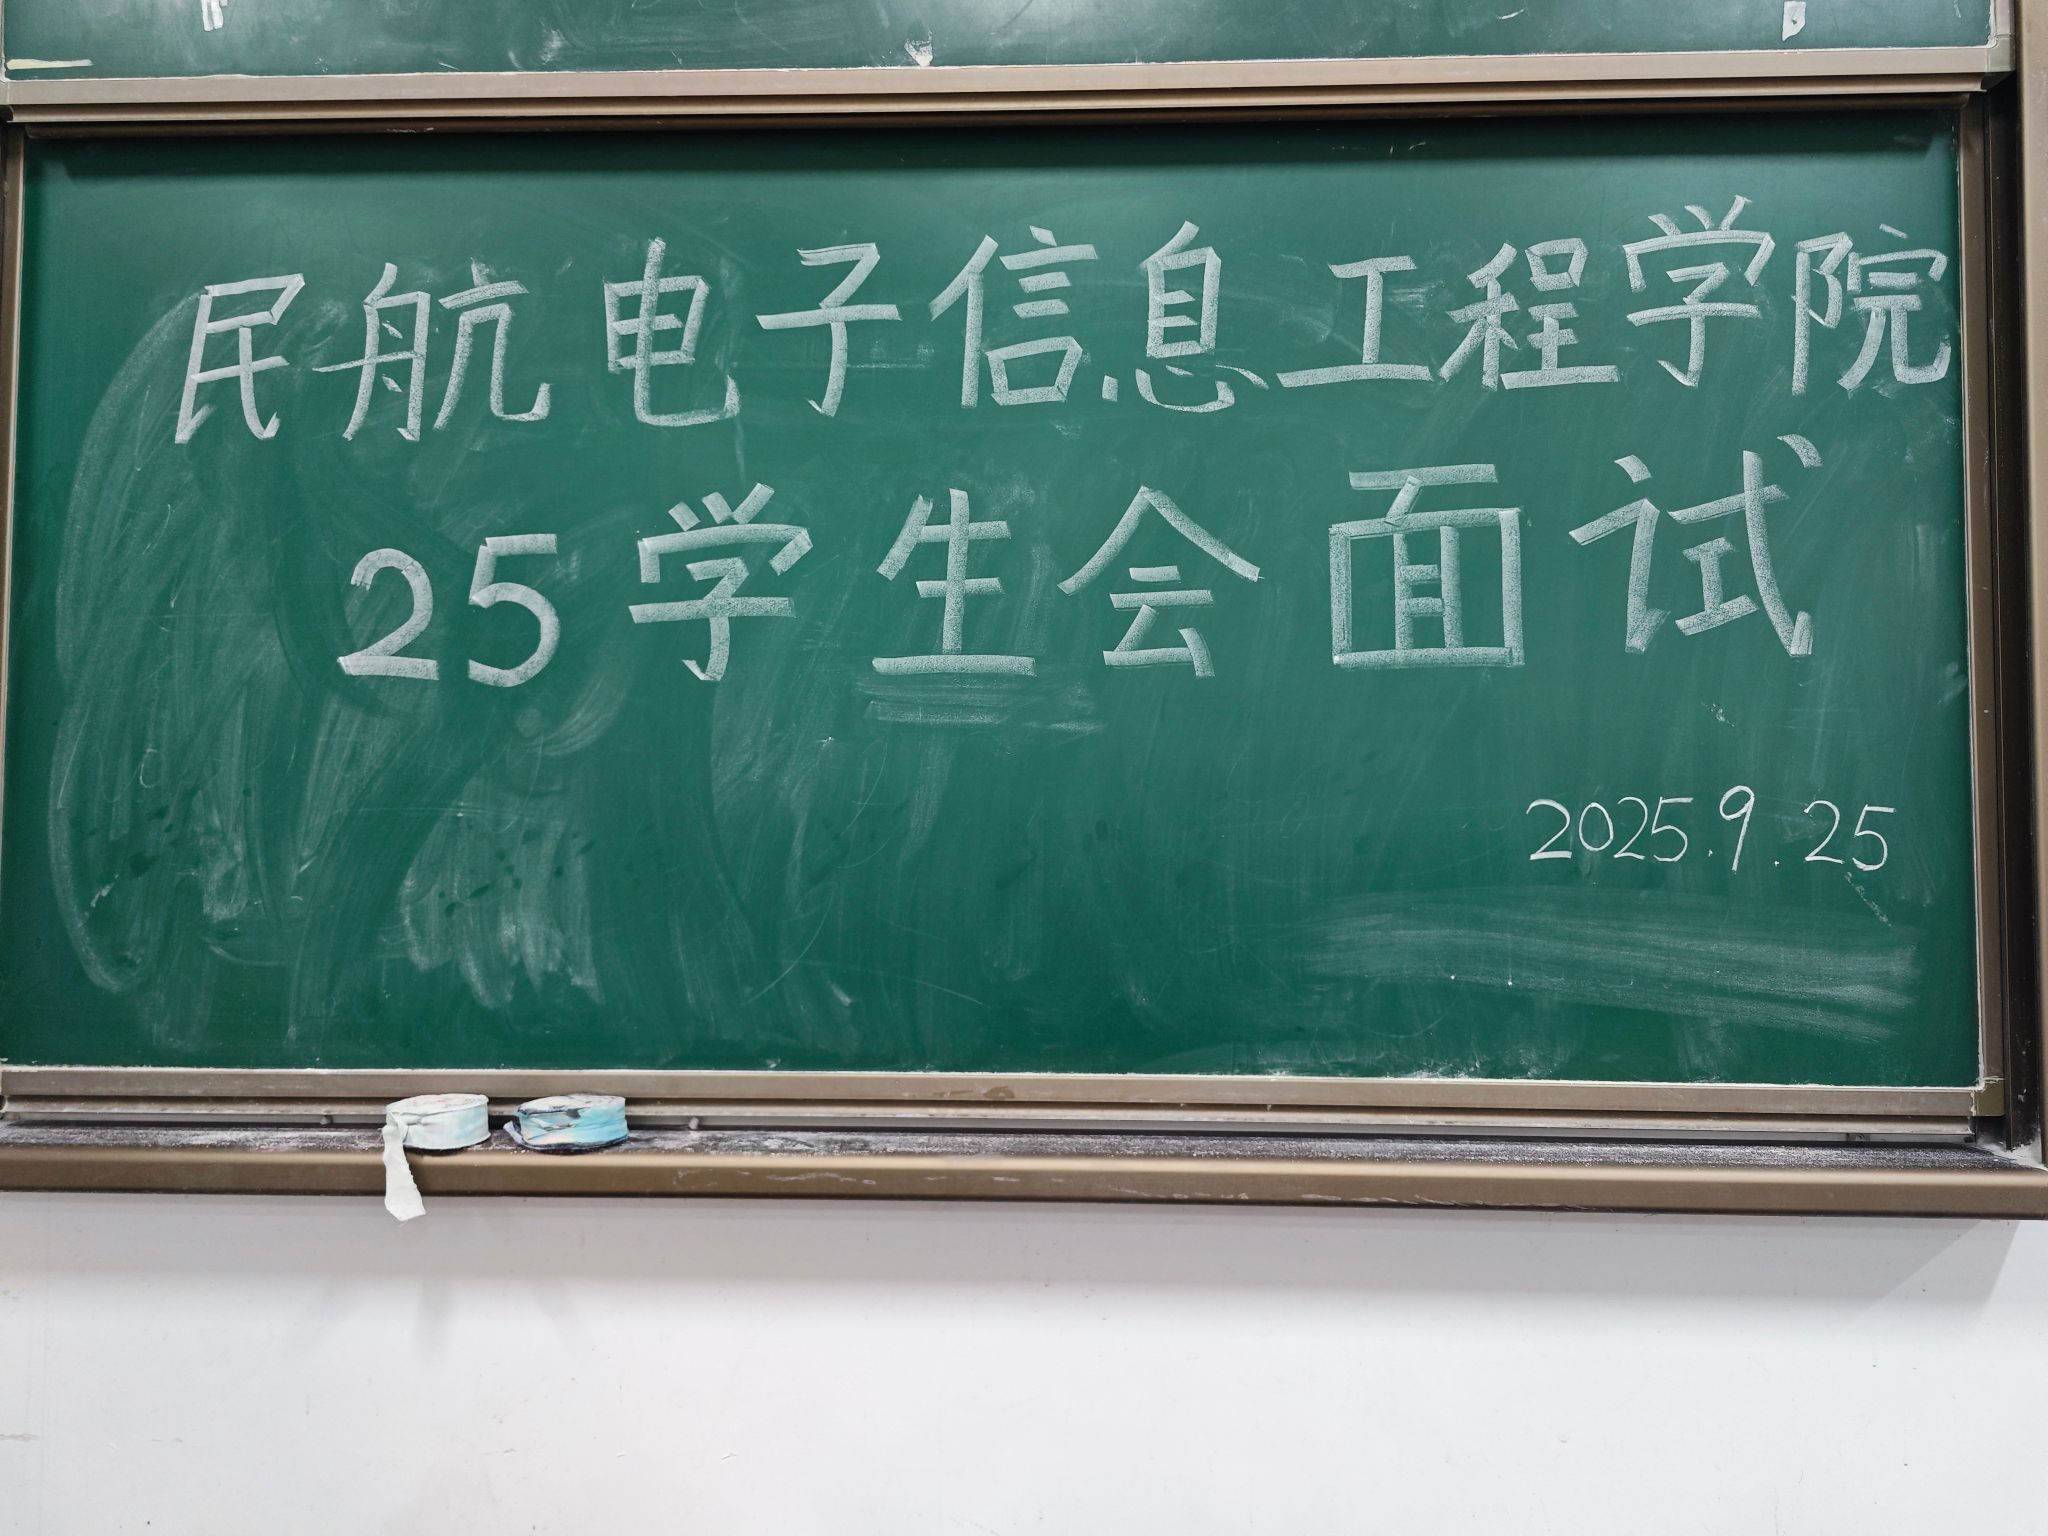 民航电子信息工程学院
25学生会面试
2025.9.25